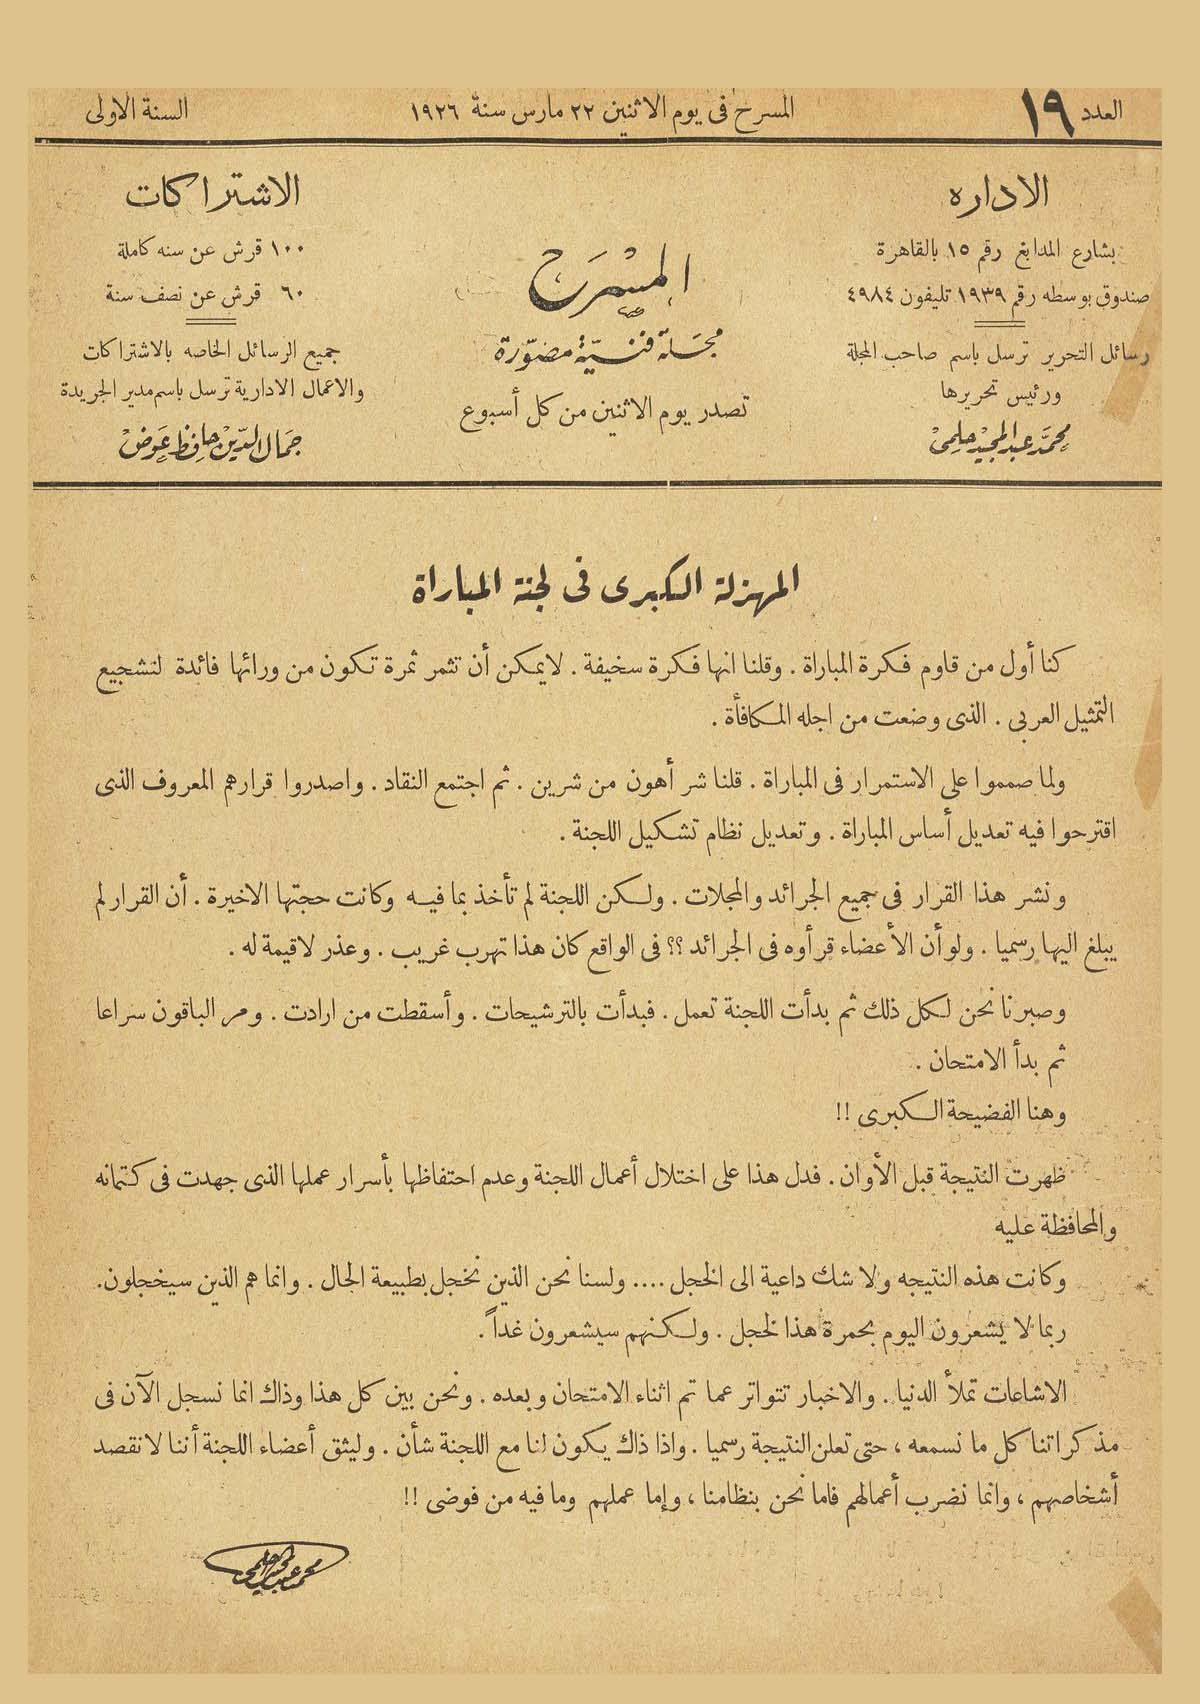 العدد ١٩
المسرح فى يوم الاثنين ٢٢ مارس سنة ١٩٢٦
السنة الاولى
الاداره
بشارع المدابغ رقم ١٥ بالقاهرة
صندوق بوسطه رقم ١٩٣٩ تليفون ٤٩٨٤
رسائل التحرير ترسل باسم صاحب المجلة
ورئيس تحريرها
محمد عبد المجيد حلمى
المسرح
مجلة فنية مصورة
تصدر يوم الاثنين من كل أسبوع
الاشتراكات
١٠٠ قرش عن سنه كاملة
٦٠ قرش عن نصف سنة
جميع الرسائل الخاصه بالاشتراكات
والاعمال الادارية ترسل باسم مدير الجريدة
جمال الدين حافظ عوض
المهزلة الكبرى فى لجنة المباراة
كنا أول من قاوم فكرة المباراة . وقلنا انها فكرة سخيفة . لايمكن أن تثمر ثمرة تكون من ورائها فائدة لتشجيع
التمثيل العربى . الذى وضعت من اجله المكافأة .
ولما صمموا على الاستمرار فى المباراة . قلنا شر أهون من شرين . ثم اجتمع النقاد . واصدروا قرارهم المعروف الذى
اقترحوا فيه تعديل أساس المباراة . وتعديل نظام تشكيل اللجنة .
ونشر هذا القرار فى جميع الجرائد والمجلات . ولكن اللجنة لم تأخذ بما فيه وكانت حجتها الاخيرة . أن القرار لم
يبلغ اليها رسميا . ولو أن الأعضاء قرأوه فى الجرائد ؟؟ فى الواقع كان هذا تهرب غريب . وعذر لاقيمة له .
وصبرنا نحن لكل ذلك ثم بدأت اللجنة تعمل . فبدأت بالترشيحات . وأسقطت من ارادت . ومر الباقون سراعا
ثم بدأ الامتحان .
وهنا الفضيحة الكبرى !!
ظهرت النتيجة قبل الأوان . فدل هذا على اختلال أعمال اللجنة وعدم احتفاظها بأسرار عملها الذى جهدت فى كتمانه
والمحافظة عليه
وكانت هذه النتيجه ولا شك داعية الى الخجل .... ولسنا نحن الذين نخجل بطبيعة الحال . وانما هم الذين سيخجلون.
ربما لا يشعرون اليوم بحمرة هذا الخجل . ولكنهم سيشعرون غداً .
الاشاعات تملأ الدنيا . والاخبار تتواتر عما تم اثناء الامتحان وبعده . ونحن بين كل هذا وذاك انما نسجل الآن فى
مذكراتنا كل ما نسمعه ، حتى تعلن النتيجة رسميا . واذا ذاك يكون لنا مع اللجنة شأن . وليثق أعضاء اللجنة أننا لانقصد
أشخاصهم ، وانما نضرب أعمالهم فاما نحن بنظامنا ، وإما عملهم وما فيه من فوضى !!
محمد عبد المجيد حلمى